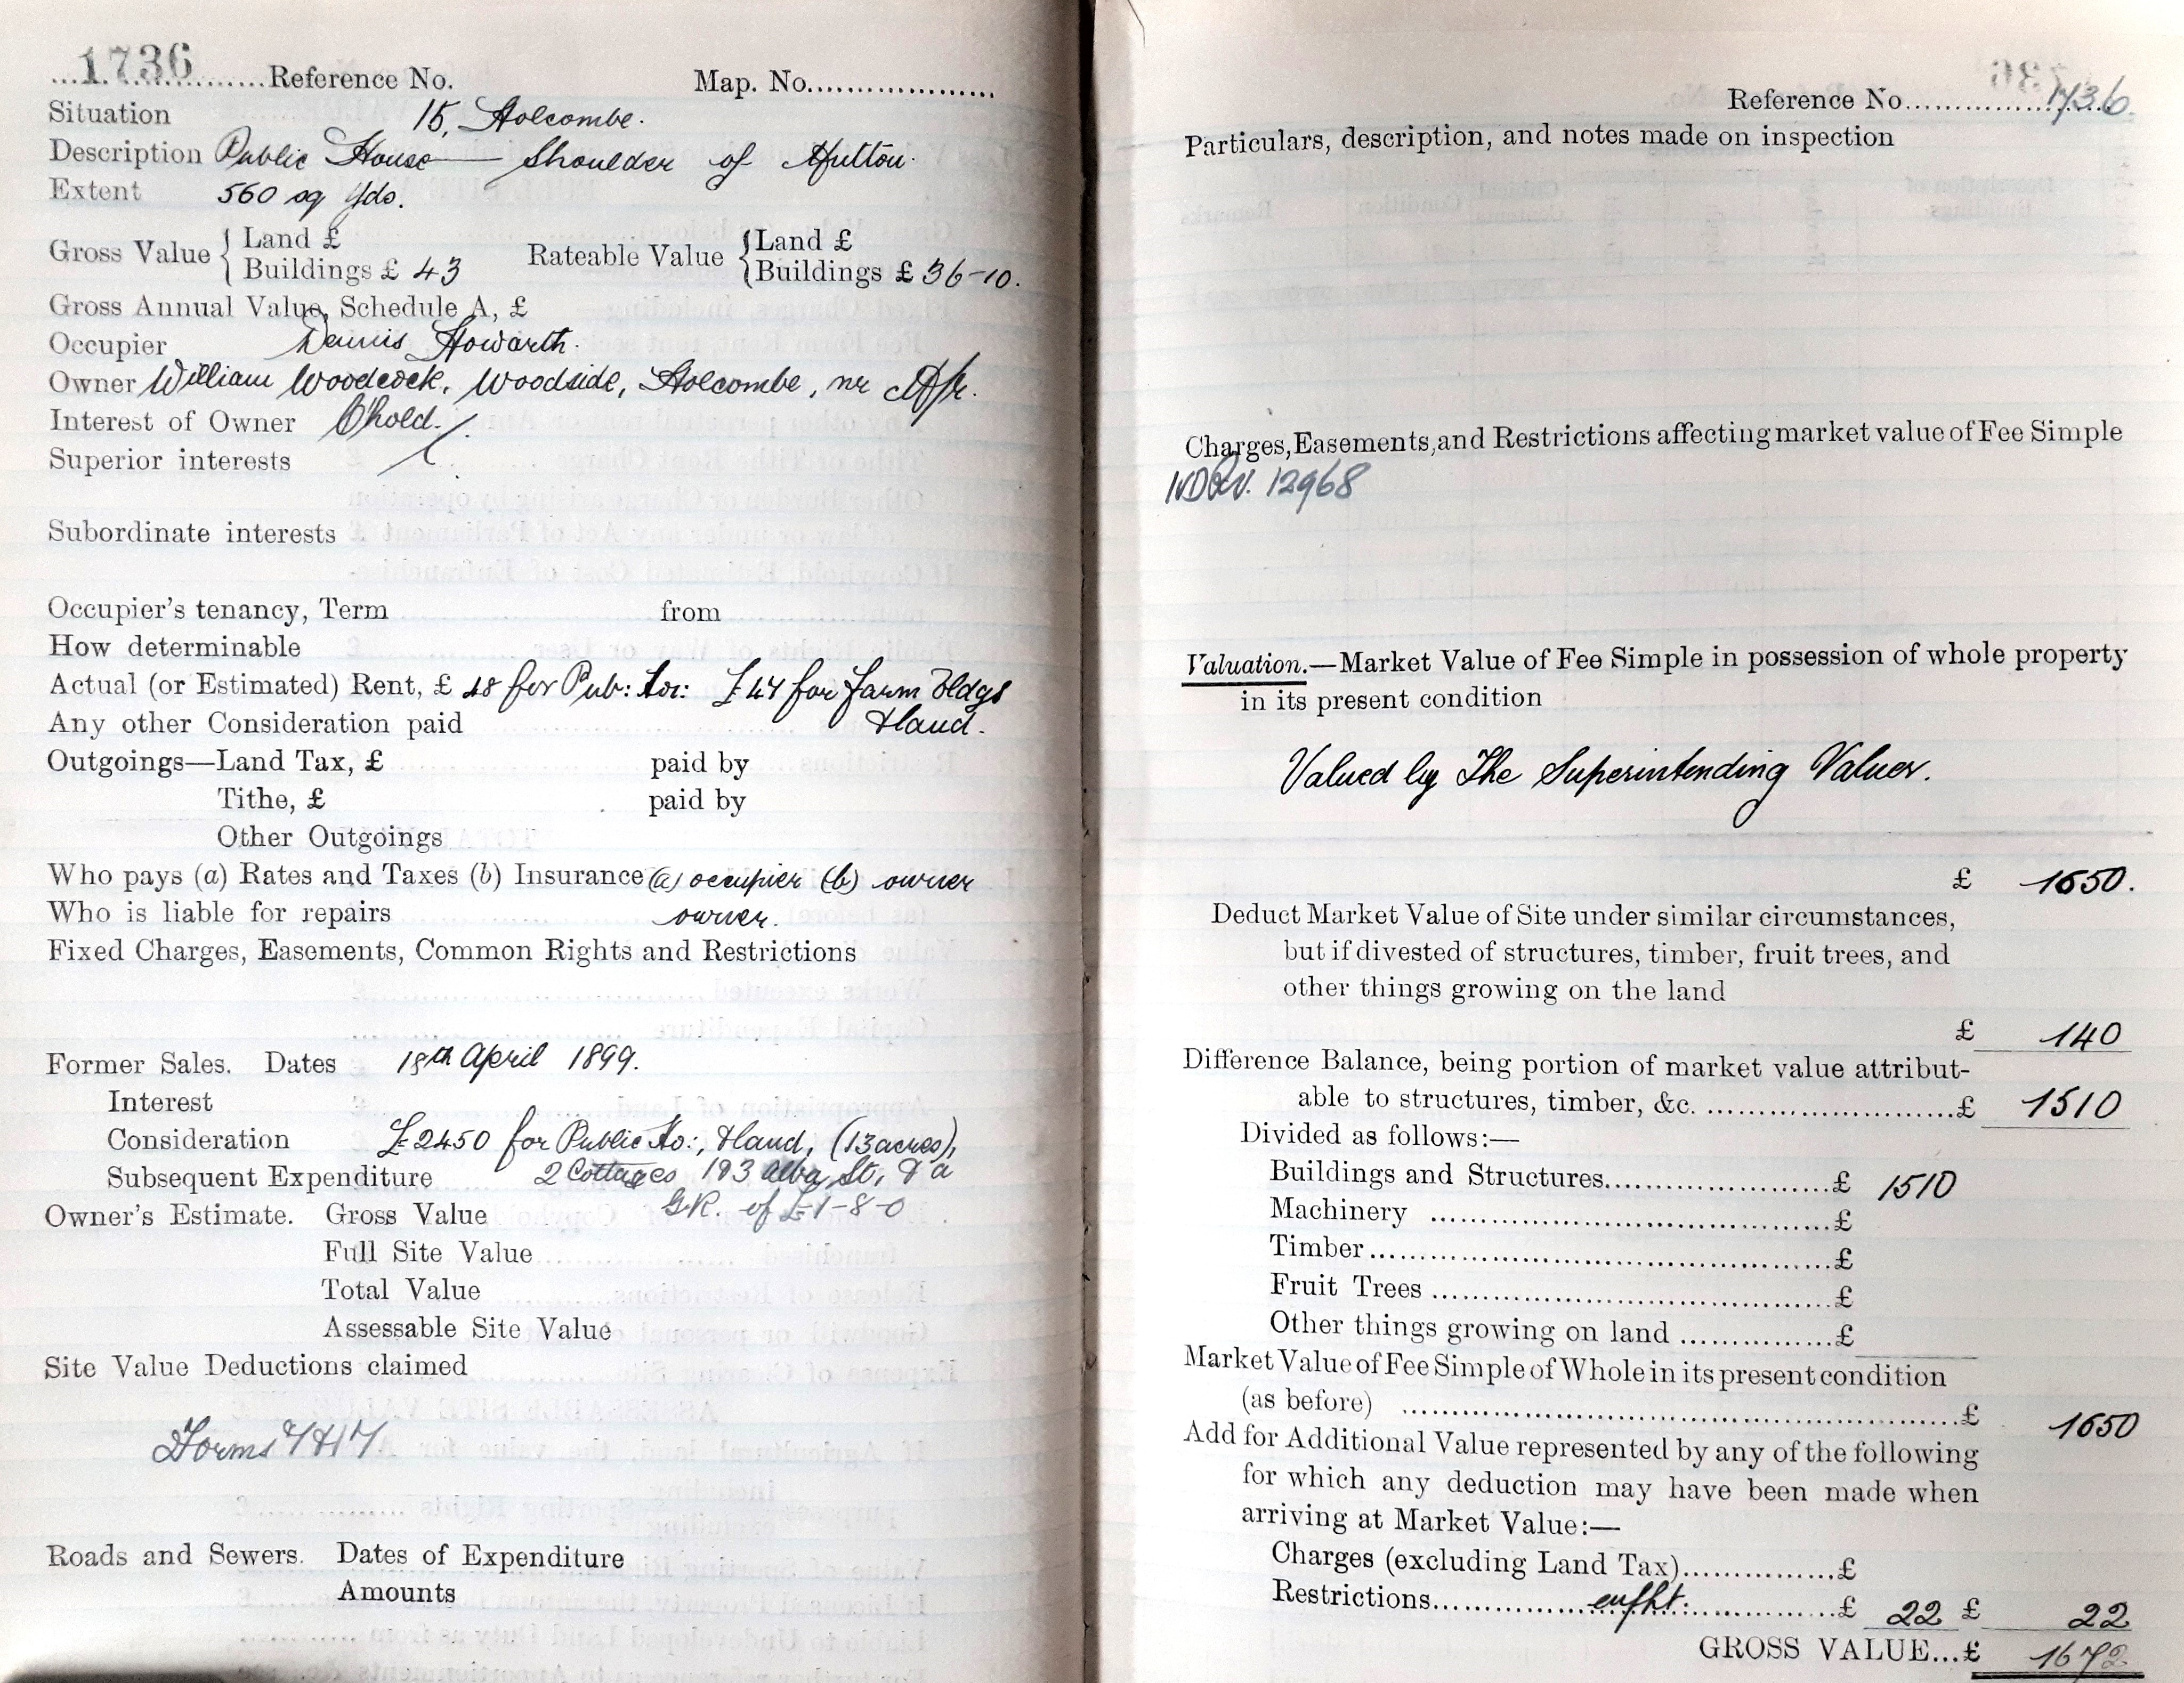 1736 Reference No. Map. No.
Situation 15, Holcombe.
Description Public House — Shoulder of Mutton.
Extent 560 sq yds.
Gross Value { Land £ Rateable Value { Land £
Buildings £ 43 Buildings £ 36-10.
Gross Annual Value, Schedule A, £
Occupier Dennis Howarth.
Owner William Woodcock, Woodside, Holcombe, nr M/r.
Interest of Owner C'hold.
Superior interests
Subordinate interests
Occupier's tenancy, Term from
How determinable
Actual (or Estimated) Rent, £ 48 for Pub: Ho: £44 for farm bldgs
Any other Consideration paid &land.
Outgoings—Land Tax, £ paid by
Tithe, £ paid by
Other Outgoings
Who pays (a) Rates and Taxes (b) Insurance (a) occupier (b) owner
Who is liable for repairs owner.
Fixed Charges, Easements, Common Rights and Restrictions
Former Sales. Dates 18th April 1899.
Interest
Consideration £2450 for Public Ho:, &land, (13 acres),
Subsequent Expenditure 2 Cottages 1&3 Alba St, & a
Owner's Estimate. Gross Value G.R. of £1-8-0
Full Site Value
Total Value
Assessable Site Value
Site Value Deductions claimed
Forms
Roads and Sewers. Dates of Expenditure
Amounts
Reference No. 1736.
Particulars, description, and notes made on inspection
Charges, Easements, and Restrictions affecting market value of Fee Simple
12968
Valuation.—Market Value of Fee Simple in possession of whole property
in its present condition
Valued by The Superintending Valuer.
£ 1650.
Deduct Market Value of Site under similar circumstances,
but if divested of structures, timber, fruit trees, and
other things growing on the land
£ 140
Difference Balance, being portion of market value attribut-
able to structures, timber, &c. £ 1510
Divided as follows:—
Buildings and Structures £ 1510
Machinery £
Timber £
Fruit Trees £
Other things growing on land £
Market Value of Fee Simple of Whole in its present condition
(as before) £ 1650
Add for Additional Value represented by any of the following
for which any deduction may have been made when
arriving at Market Value:—
Charges (excluding Land Tax) £
Restrictions enfht. £ 22 £ 22
GROSS VALUE...£ 1672